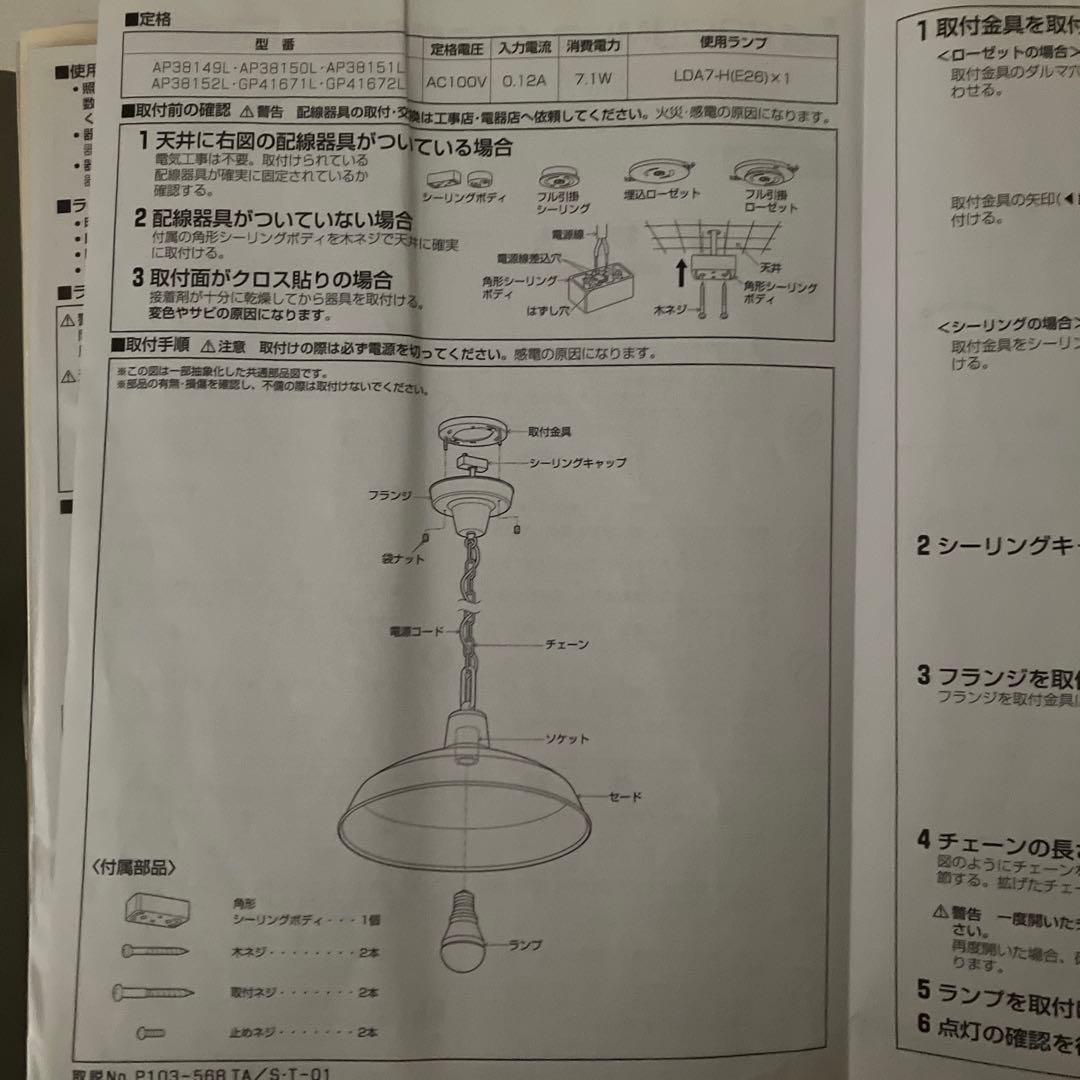 ■定格
型番 定格電圧 入力電流 消費電力 使用ランプ
AP38149L・AP38150L・AP38151L
AP38152L・GP41671L・GP41672L
AC100V 0.12A 7.1W LDA7-H(E26)×1
■取付前の確認 ⚠警告 配線器具の取付・交換は工事店・電器店へ依頼してください。火災・感電の原因になります。
1 天井に右図の配線器具がついている場合
電気工事は不要。取付けられている
配線器具が確実に固定されているか
確認する。
シーリングボディ
フル引掛
シーリング
埋込ローゼット
フル引掛
ローゼット
2 配線器具がついていない場合
付属の角形シーリングボディを木ネジで天井に確実
に取付ける。
3 取付面がクロス貼りの場合
接着剤が十分に乾燥してから器具を取付ける。
変色やサビの原因になります。
電源線
電源線差込穴
角形シーリング
ボディ
はずし穴
天井
角形シーリング
ボディ
木ネジ
■取付手順 ⚠注意 取付けの際は必ず電源を切ってください。感電の原因になります。
※この図は一部抽象化した共通部品図です。
※部品の有無・損傷を確認し、不備の際は取付けないでください。
取付金具
シーリングキャップ
フランジ
袋ナット
電源コード
チェーン
ソケット
セード
ランプ
〈付属部品〉
角形
シーリングボディ・・・1個
木ネジ・・・・・・・・2本
取付ネジ・・・・・・・2本
止めネジ・・・・・・・2本
取説No. P103-568 TA/S・T-01
■使用
■ラ
■ラ
1 取付金具を取付
<ローゼットの場合>
取付金具のダルマ穴
わせる。
取付金具の矢印(◀
付ける。
<シーリングの場合>
取付金具をシーリン
ける。
2 シーリングキ
3 フランジを取付
フランジを取付金具に
4 チェーンの長さ
図のようにチェーンを
節する。拡げたチェー
⚠警告 一度開いたチ
さい。
再度開いた場合、破
ります。
5 ランプを取付け
6 点灯の確認を行